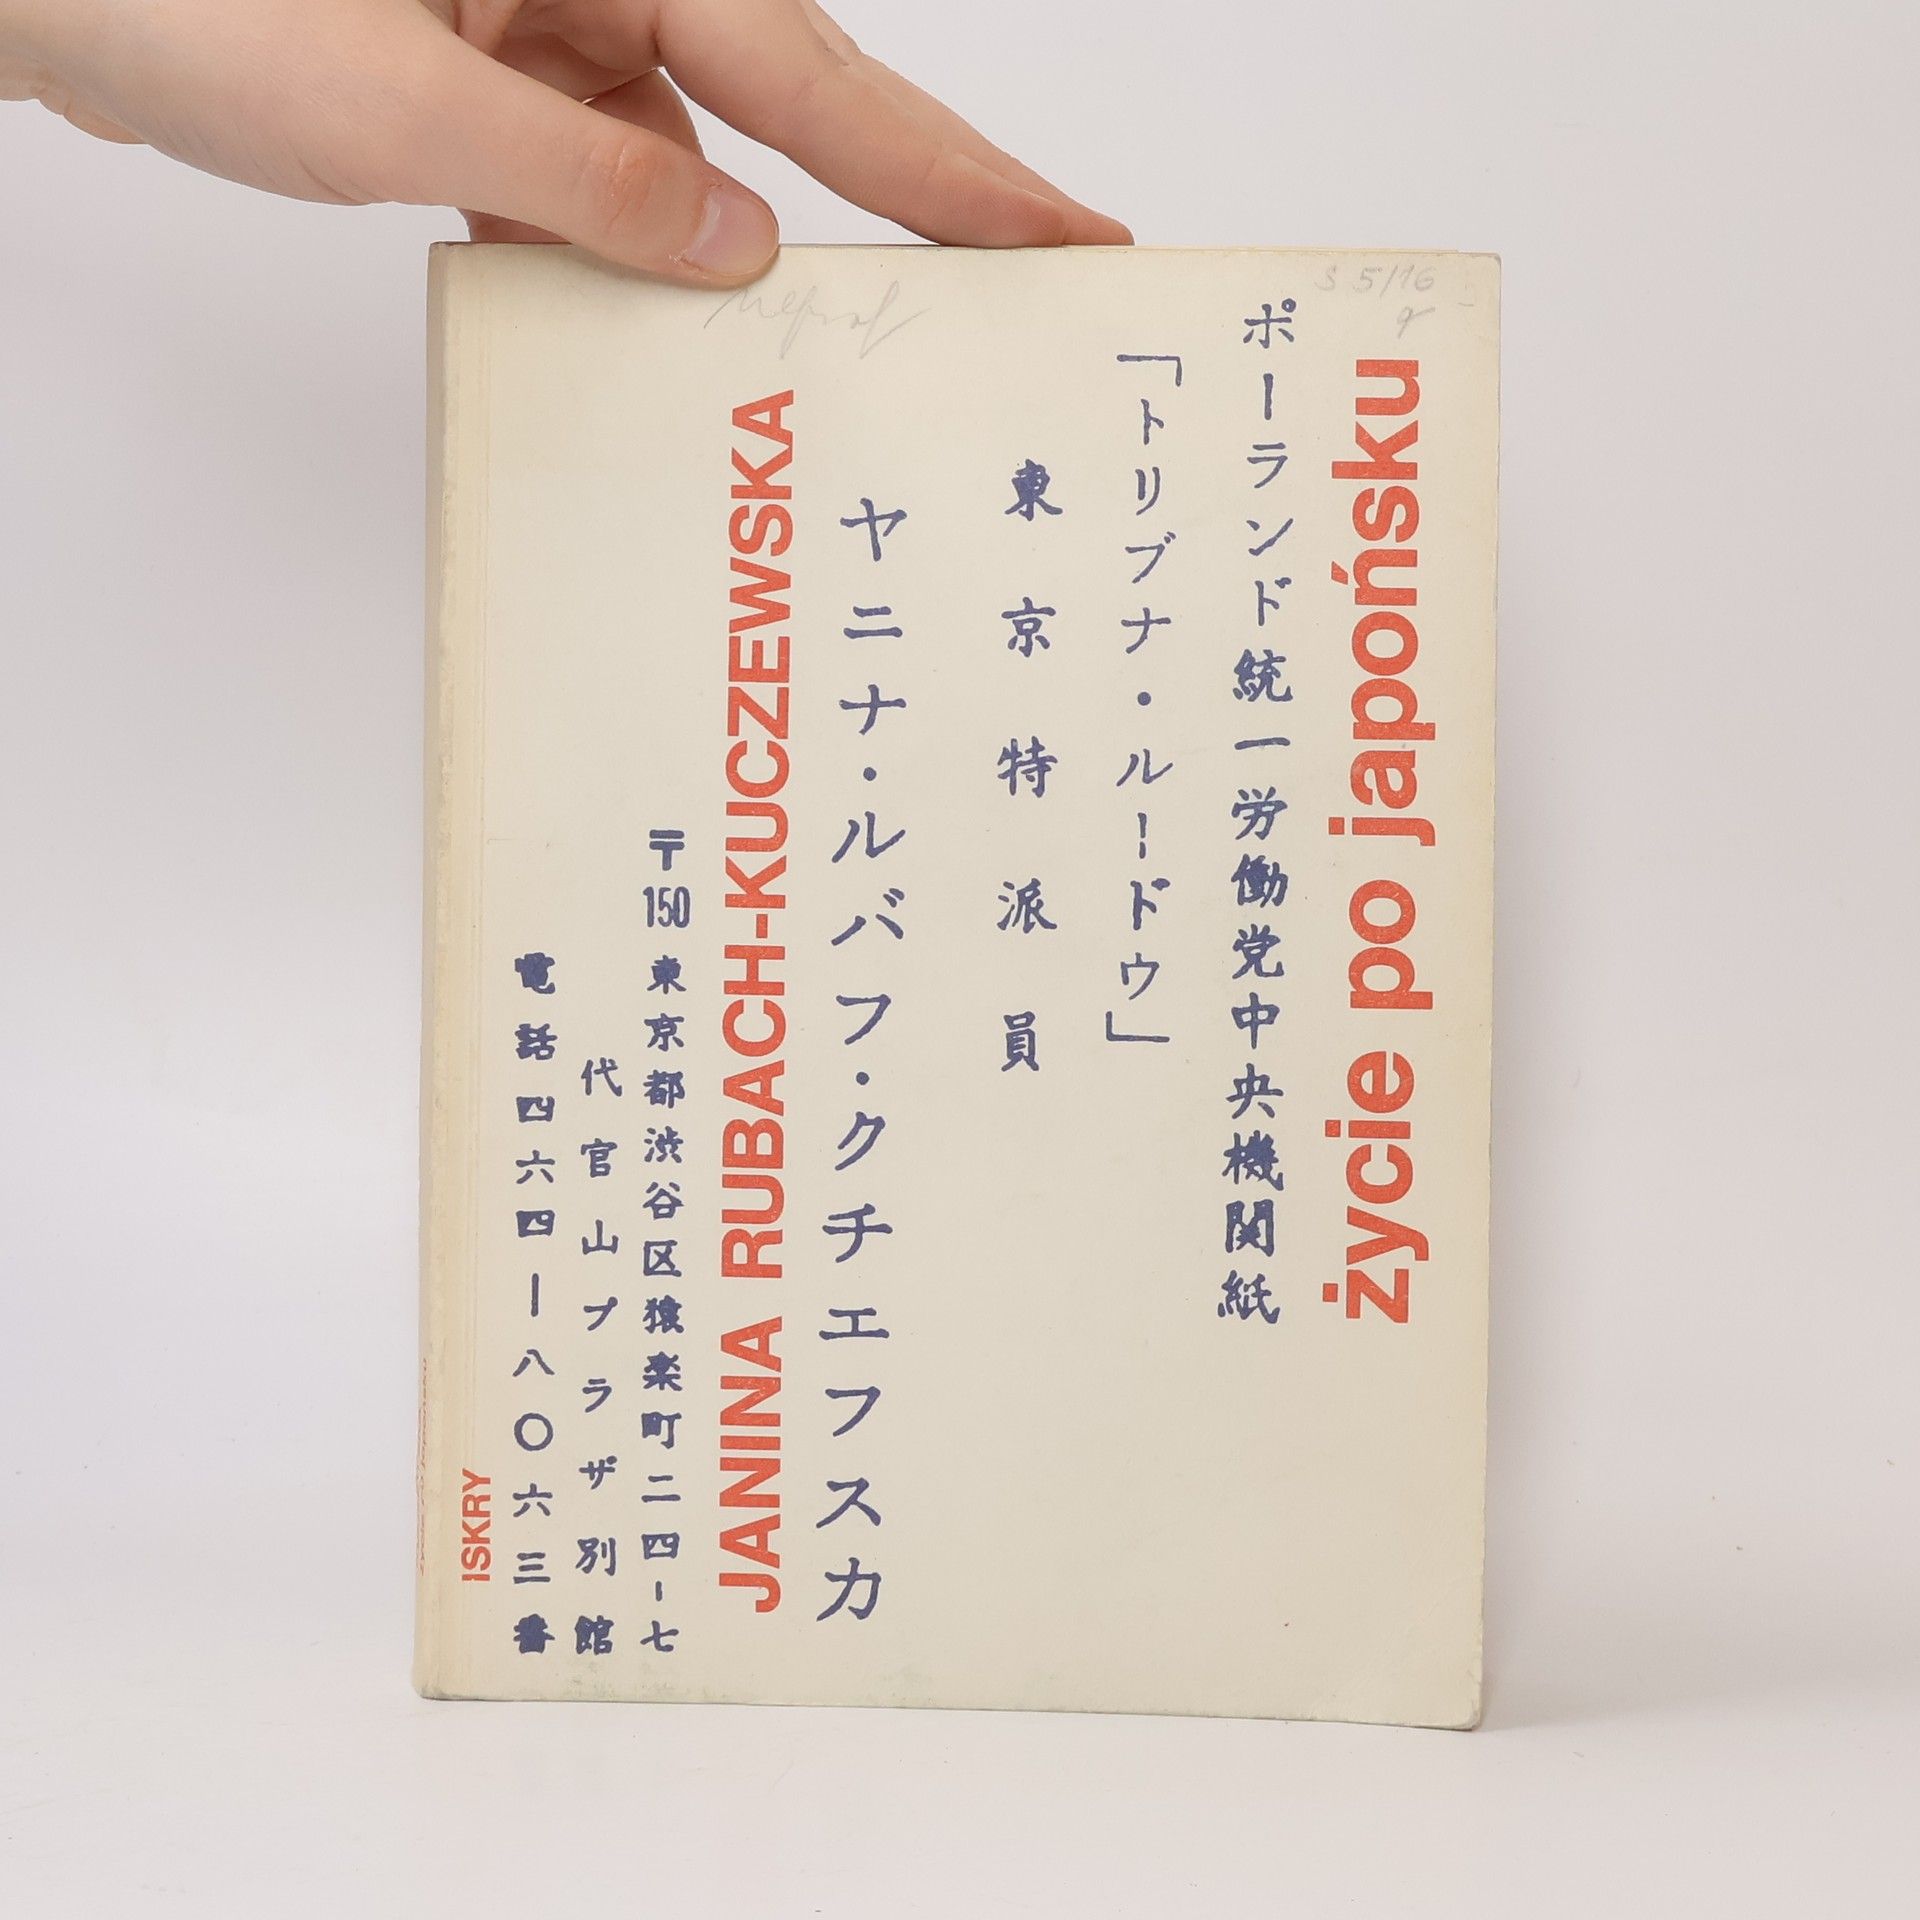 życie po japońsku
ポーランド統一労働党中央機関紙
「トリブナ・ルードウ」
東京特派員
ヤニナ・ルバフ・クチエフスカ
JANINA RUBACH-KUCZEWSKA
〒150東京都渋谷区猿楽町二四ー七
代官山プラザ別館
電話四六四ー八〇六三番
ISKRY
S 5/16